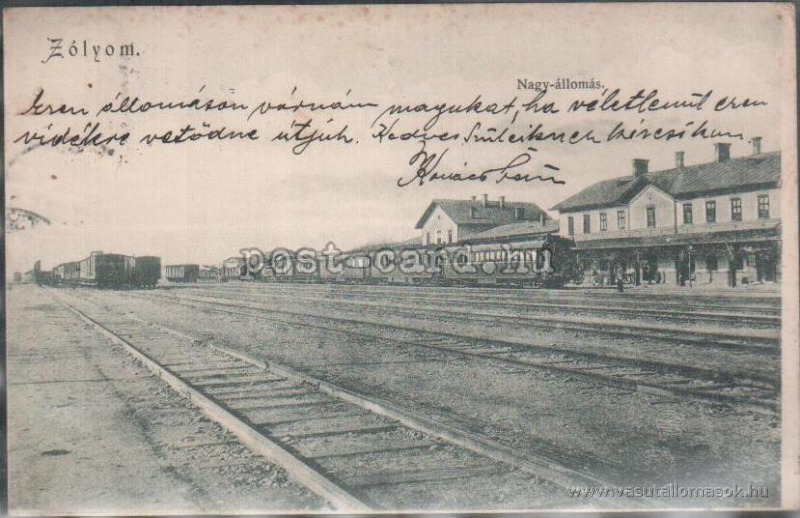 Zólyom.
Nagy-állomás.
Ezen állomáson várnám magukat, ha véletlenül ezen
vidékre vetődne útjuk. Kedves Szüleiknek kézcsókom
Kovács
post-card.hu
www.vasutallomasok.hu